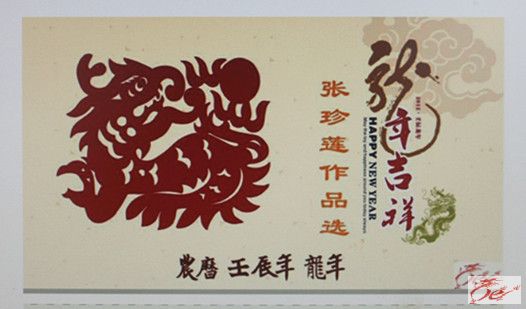 龙年吉祥
HAPPY NEW YEAR
张珍莲作品选
農曆 壬辰年 龍年